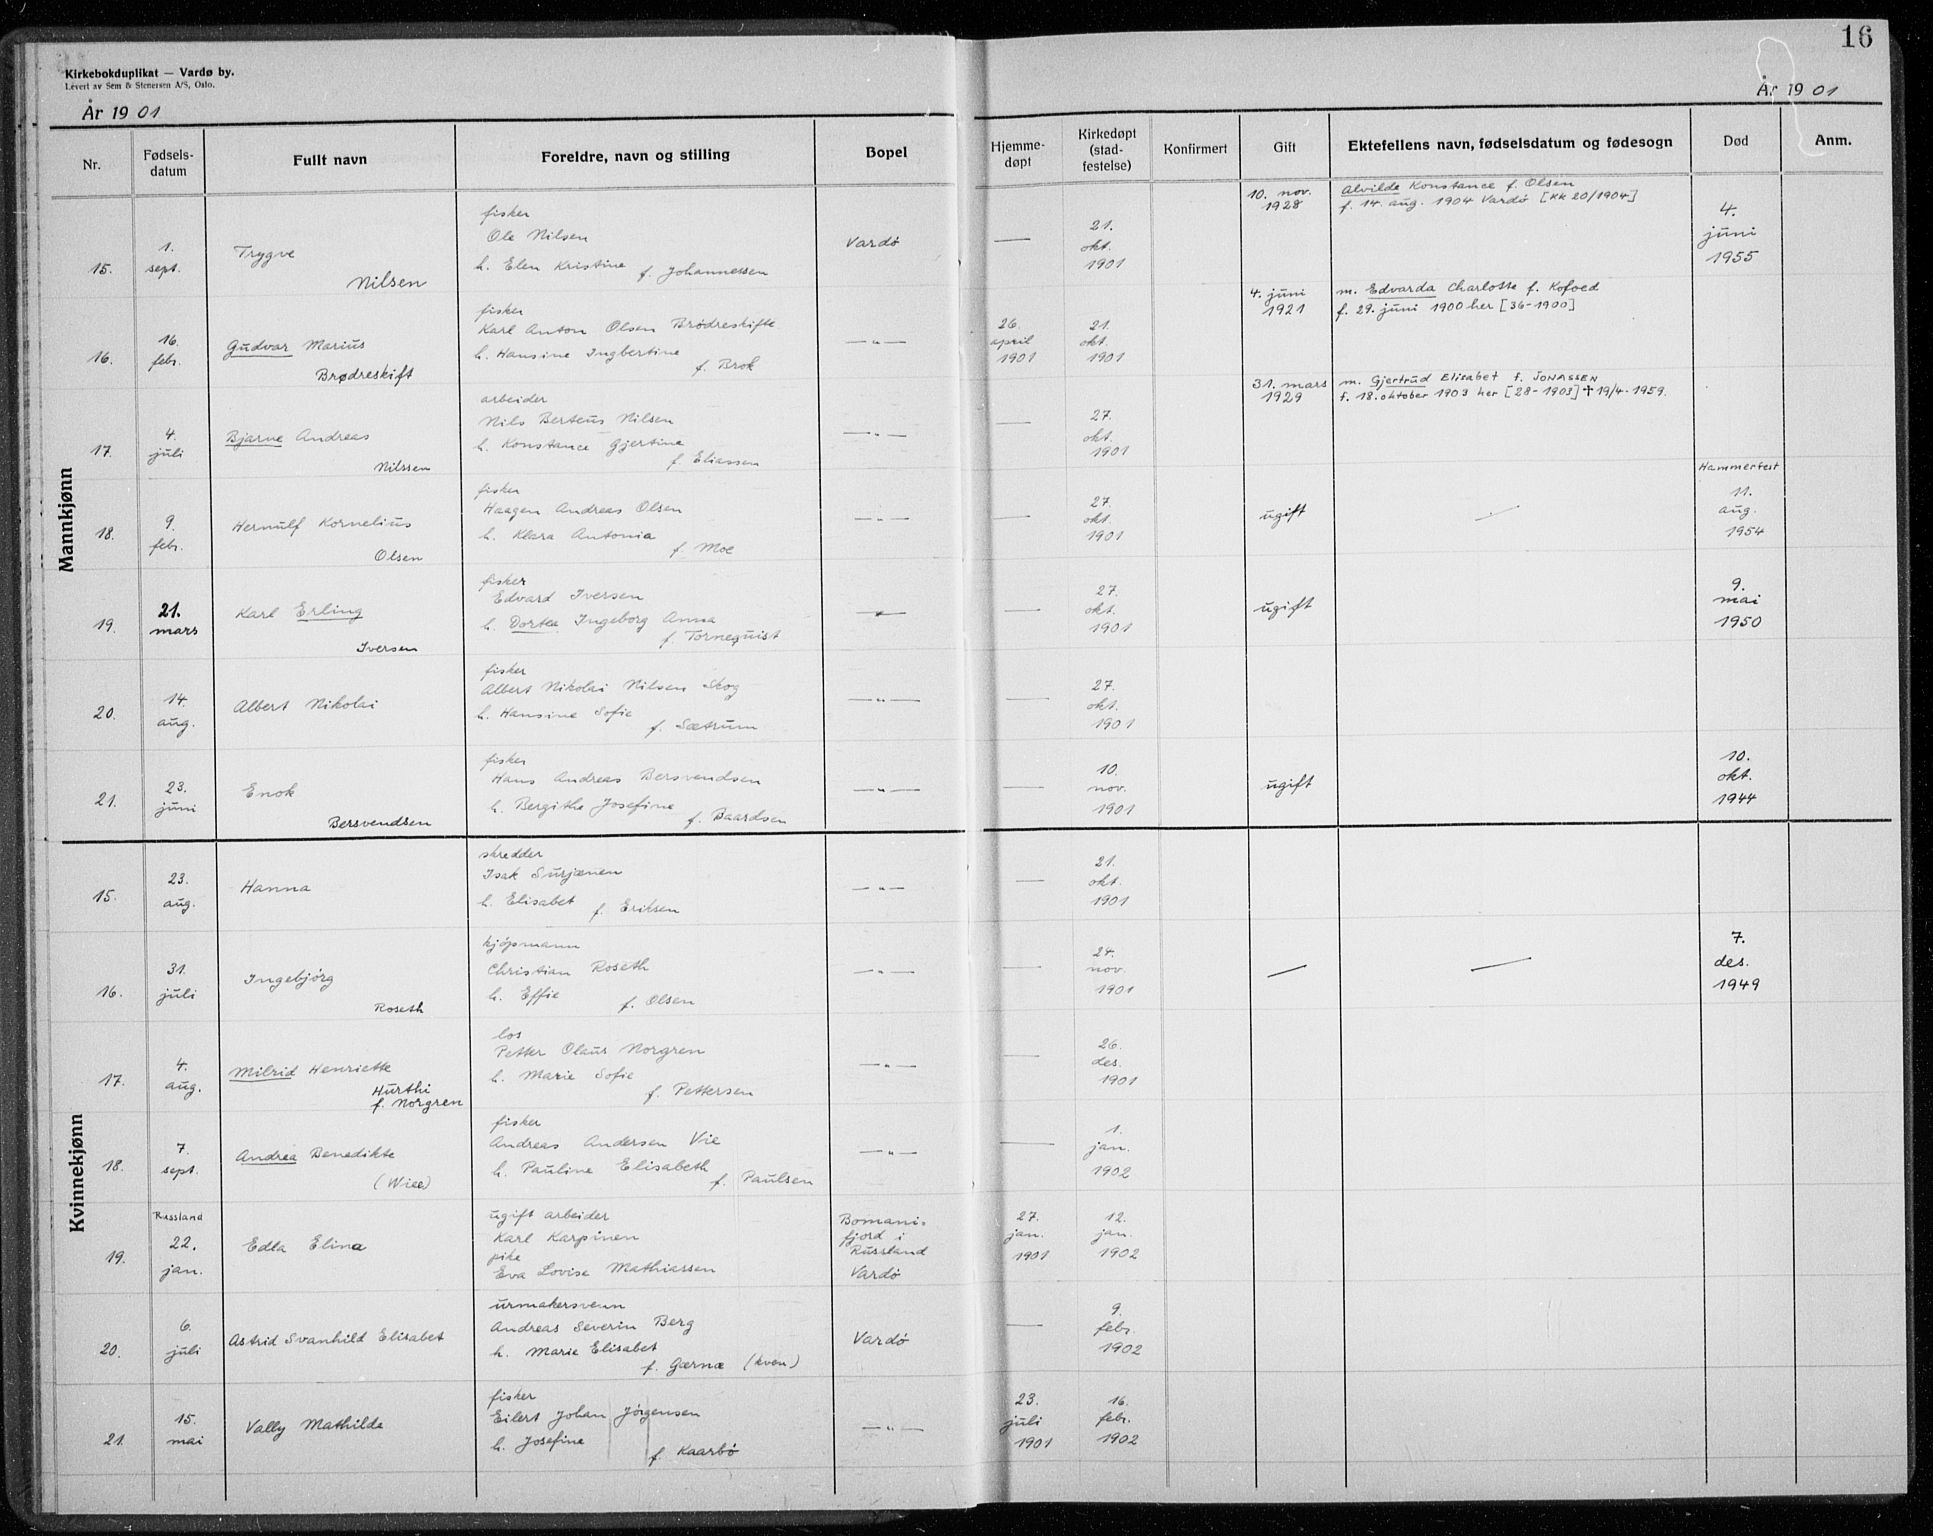 16
Kirkebokduplikat — Vardø by.
Levert av Sem & Stenersen A/S, Oslo.
År 1901
År 1901
Nr.
Fødsels-
datum
Fullt navn
Foreldre, navn og stilling
Bopel
Hjemme-
døpt
Kirkedøpt
(stad-
festelse)
Konfirmert
Gift
Ektefellens navn, fødselsdatum og fødesogn
Død
Anm.
Mannkjønn
15.
1.
sept.
Trygve
Nilsen
fisker
Ole Nilsen
h. Elen Kristine f. Johannessen
Vardö
—
21.
okt.
1901
10. nov.
1928
Alvilde Konstance f. Olsen
f. 14. aug. 1904 Vardö [KK 20/1904]
4.
juni
1955
16.
16.
febr.
Gudvar Marius
Brødreskift
fisker
Karl Anton Olsen Brödreskifte
h. Hansine Ingbertine
f. Brok
—"—
26.
april
1901
21.
okt.
1901
4. juni
1921
m. Edvarda Charlotte f. Kofoed
f. 29. juni 1900 her [36-1900]
17.
4.
juli
Bjarne Andreas
Nilssen
arbeider
Nils Berteus Nilsen
h. Konstance Gjertine
f. Eliassen
—"—
—
27.
okt.
1901
31. mars
1929
m. Gjertrud Elisabet f. JONASSEN
f. 18. oktober 1903 her [28-1903] ✝ 19/4-1959.
18.
9.
febr.
Hernulf Kornelius
Olsen
fisker
Haagen Andreas Olsen
h. Klara Antonia
f. Moe
—"—
—
27.
okt.
1901
ugift
—
Hammerfest
11.
aug.
1954
19.
21.
mars
Karl Erling
Iversen
fisker
Edvard Iversen
h. Dortea Ingeborg Anna
f. Tornequist
—"—
—
27.
okt.
1901
ugift
9.
mai
1950
20.
14.
aug.
Albert Nikolai
fisker
Albert Nikolai Nilsen Skog
h. Hansine Sofie
f. Sætrum
—"—
—
27.
okt.
1901
21.
23.
juni
Enok
Bersvendsen
fisker
Hans Andreas Bersvendsen
h. Bergithe Josefine
f. Baardsen
—"—
—
10.
nov.
1901
ugift
10.
okt.
1944
Kvinnekjønn
15.
23.
aug.
Hanna
skredder
Isak Surjænen
h. Elisabet f. Eriksen
—"—
—
21.
okt.
1901
16.
31.
juli
Ingebjörg
Roseth
kjöpmann
Christian Roseth
h. Effie f. Olsen
—"—
—
24.
nov.
1901
—
—
7.
des.
1949
17.
4.
aug.
Milrid Henriette
Hurthi
f. Norgren
los
Petter Olaus Norgren
h. Marie Sofie
f. Pettersen
—"—
—
26.
des.
1901
18.
7.
sept.
Andrea Benedikte
(Wiee)
fisker
Andreas Andersen Vie
h. Pauline Elisabeth
f. Paulsen
—"—
—
1.
jan.
1902
19.
Russland
22.
jan.
Edla Elina
ugift arbeider
Karl Karpinen
pike
Eva Lovise Mathiassen
Bomani-
fjord i
Russland
Vardö
27.
jan.
1901
12.
jan.
1902
20.
6.
juli
Astrid Svanhild Elisabet
urmakersvenn
Andreas Severin Berg
h. Marie Elisabet
f. Gærnæ (kven)
Vardö
—
9.
febr.
1902
21.
15.
mai
Vally Mathilde
fisker
Eilert Johan Jörgensen
h. Josefine
f. Kaarbö
—"—
23.
juli
1901
16.
febr.
1902